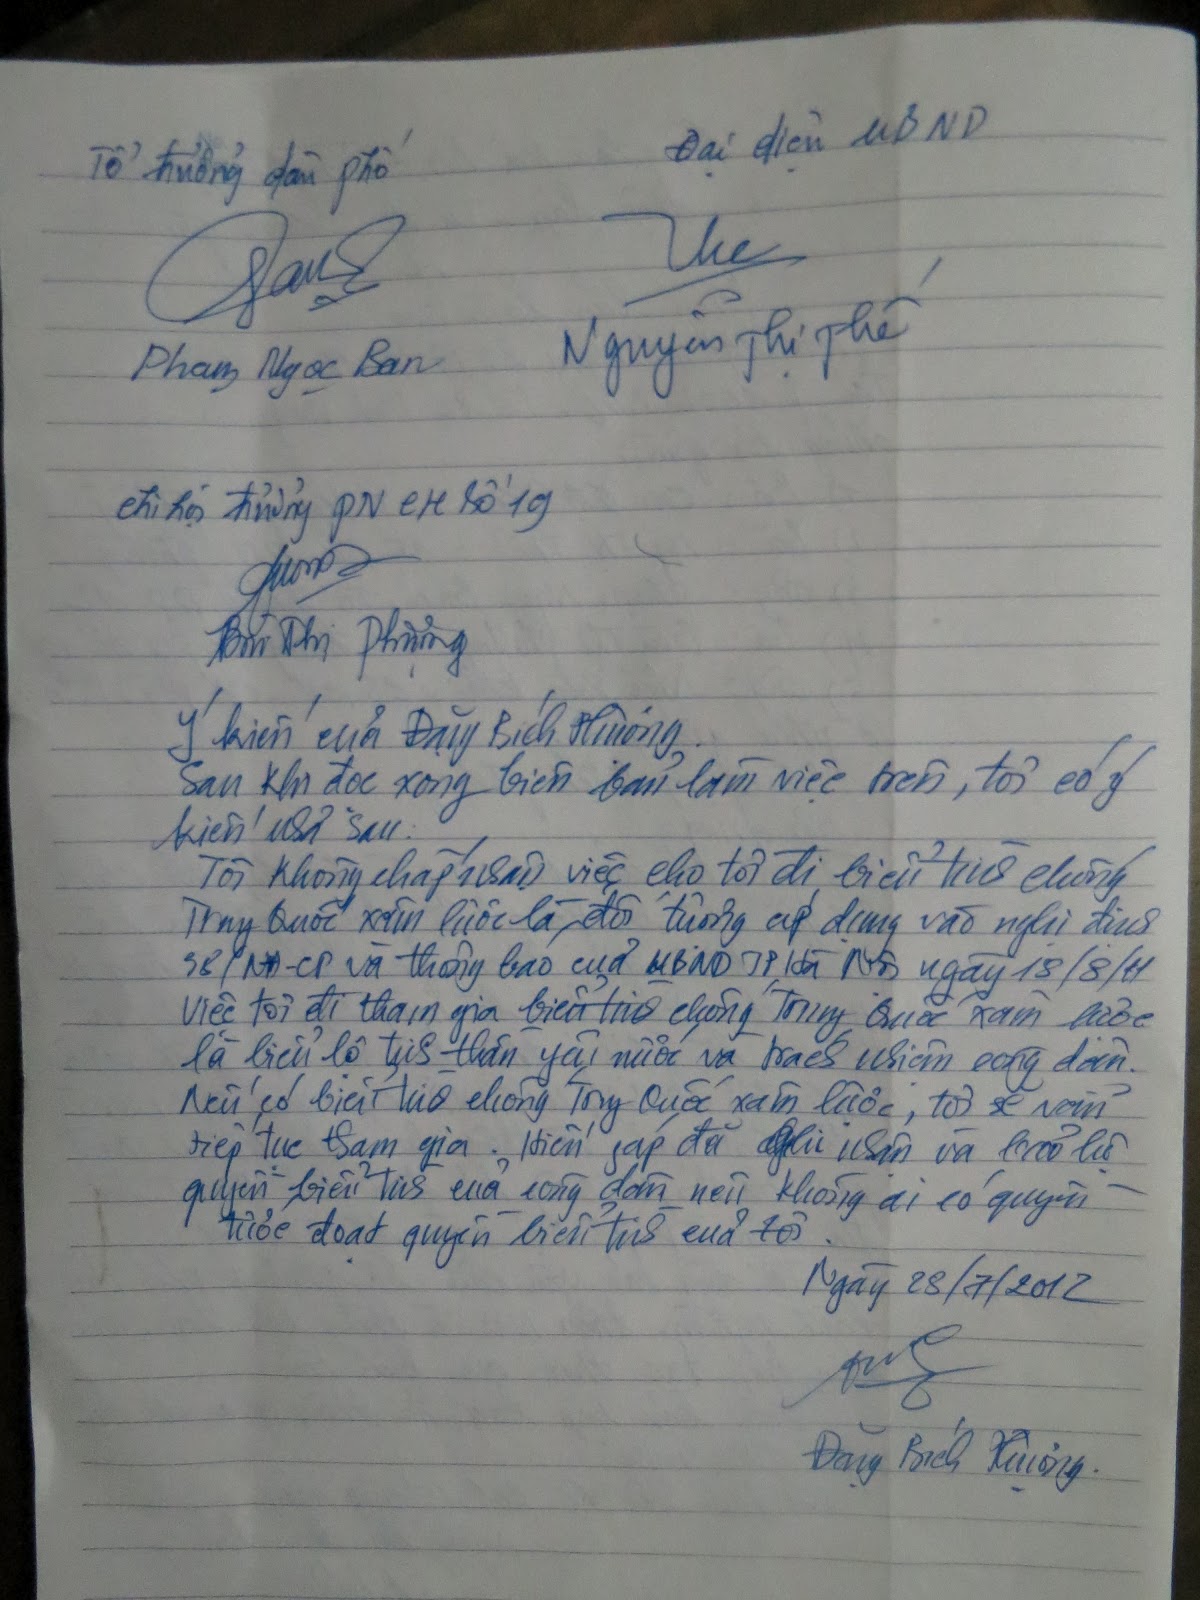 Tổ trưởng dân phố
Đại diện UBND
Phạm Ngọc Ban
Nguyễn Thị Thế
Chi hội trưởng PN CH số 19
Bùi Thị Phượng
Ý kiến của Đặng Bích Phượng.
Sau khi đọc xong biên bản làm việc trên, tôi có ý
kiến như sau:
Tôi không chấp nhận việc cho tôi đi biểu tình chống
Trung Quốc xâm lược là đối tượng áp dụng vào nghị định
38/NĐ-CP và thông báo của UBND TP Hà Nội ngày 18/8/11
Việc tôi đi tham gia biểu tình chống Trung Quốc xâm lược
là biểu lộ tinh thần yêu nước và trách nhiệm công dân.
Nếu có biểu tình chống Trung Quốc xâm lược, tôi sẽ vẫn
tiếp tục tham gia. Hiến pháp đã ghi nhận và bảo hộ
quyền biểu tình của công dân nên không ai có quyền
tước đoạt quyền biểu tình của tôi.
Ngày 28/7/2012
Đặng Bích Phượng.